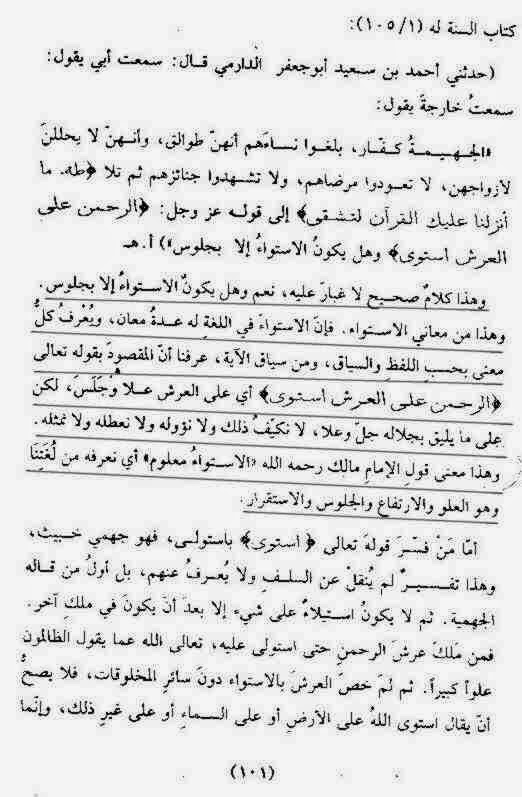 كتاب السنة له (١/١٠٥):
(حدثني أحمد بن سعيد أبوجعفر الدارمي قال: سمعت أبي يقول:
سمعتُ خارجةَ يقول:
«الجهيمةُ كفّار، بلغوا نساءَهم أنهنّ طوالق، وأنهنّ لا يحللنَ
لازواجهن، لا تعودوا مرضاهم، ولا تشهدوا جنائزهم ثم تلا ﴿طه. ما
أنزلنا عليك القرآن لتشقى﴾ إلى قوله عز وجل: ﴿الرحمن على
العرش استوى﴾ وهل يكونُ الاستواءُ إلا بجلوس») أ.هـ
وهذا كلامٌ صحيح لا غبارَ عليه، نعم وهل يكونُ الاستواءُ إلا بجلوس.
وهذا من معاني الاستواء. فإنّ الاستواءَ في اللغةِ له عدةُ معان، ويُعْرفُ كلُّ
معنى بحسبِ اللفظِ والسياق، ومن سياق الآية، عرفنا أنّ المقصودَ بقوله تعالى
﴿الرحمن على العرش استوى﴾ أي على العرش علا وَجَلَسَ، لكن
على ما يليق بجلاله جلّ وعلا، لا نكيّفُ ذلك ولا نؤوله ولا نعطله ولا نمثله.
وهذا معنى قولِ الإمامِ مالك رحمه الله «الاستواءُ معلوم» أي نعرفه من لُغَتِنَا
وهو العلو والارتفاع والجلوس والاستقرار.
أمّا مَنْ فسّرَ قولهَ تعالى ﴿استوى﴾ باستولى، فهو جهمي خبيث،
وهذا تفسيرٌ لم يُنقلْ عن السلفِ ولا يُعرفُ عنهم، بل أولُ من قاله
الجهمية. ثم لا يكونُ استيلاءً على شيء إلا بعدَ أنّ يكونَ في ملكِ آخر.
فمن مَلكَ عرشَ الرحمنِ حتى استولى عليه، تعالى الله عما يقول الظالمون
علواً كبيراً. ثم لمَ خصّ العرشَ بالاستواء دونَ سائرِ المخلوقات، فلا يصحُّ
أنّ يقال استوى اللهُ على الأرضِ أو على السماءِ أو على غيرِ ذلك، وإنّما
(١٠١)